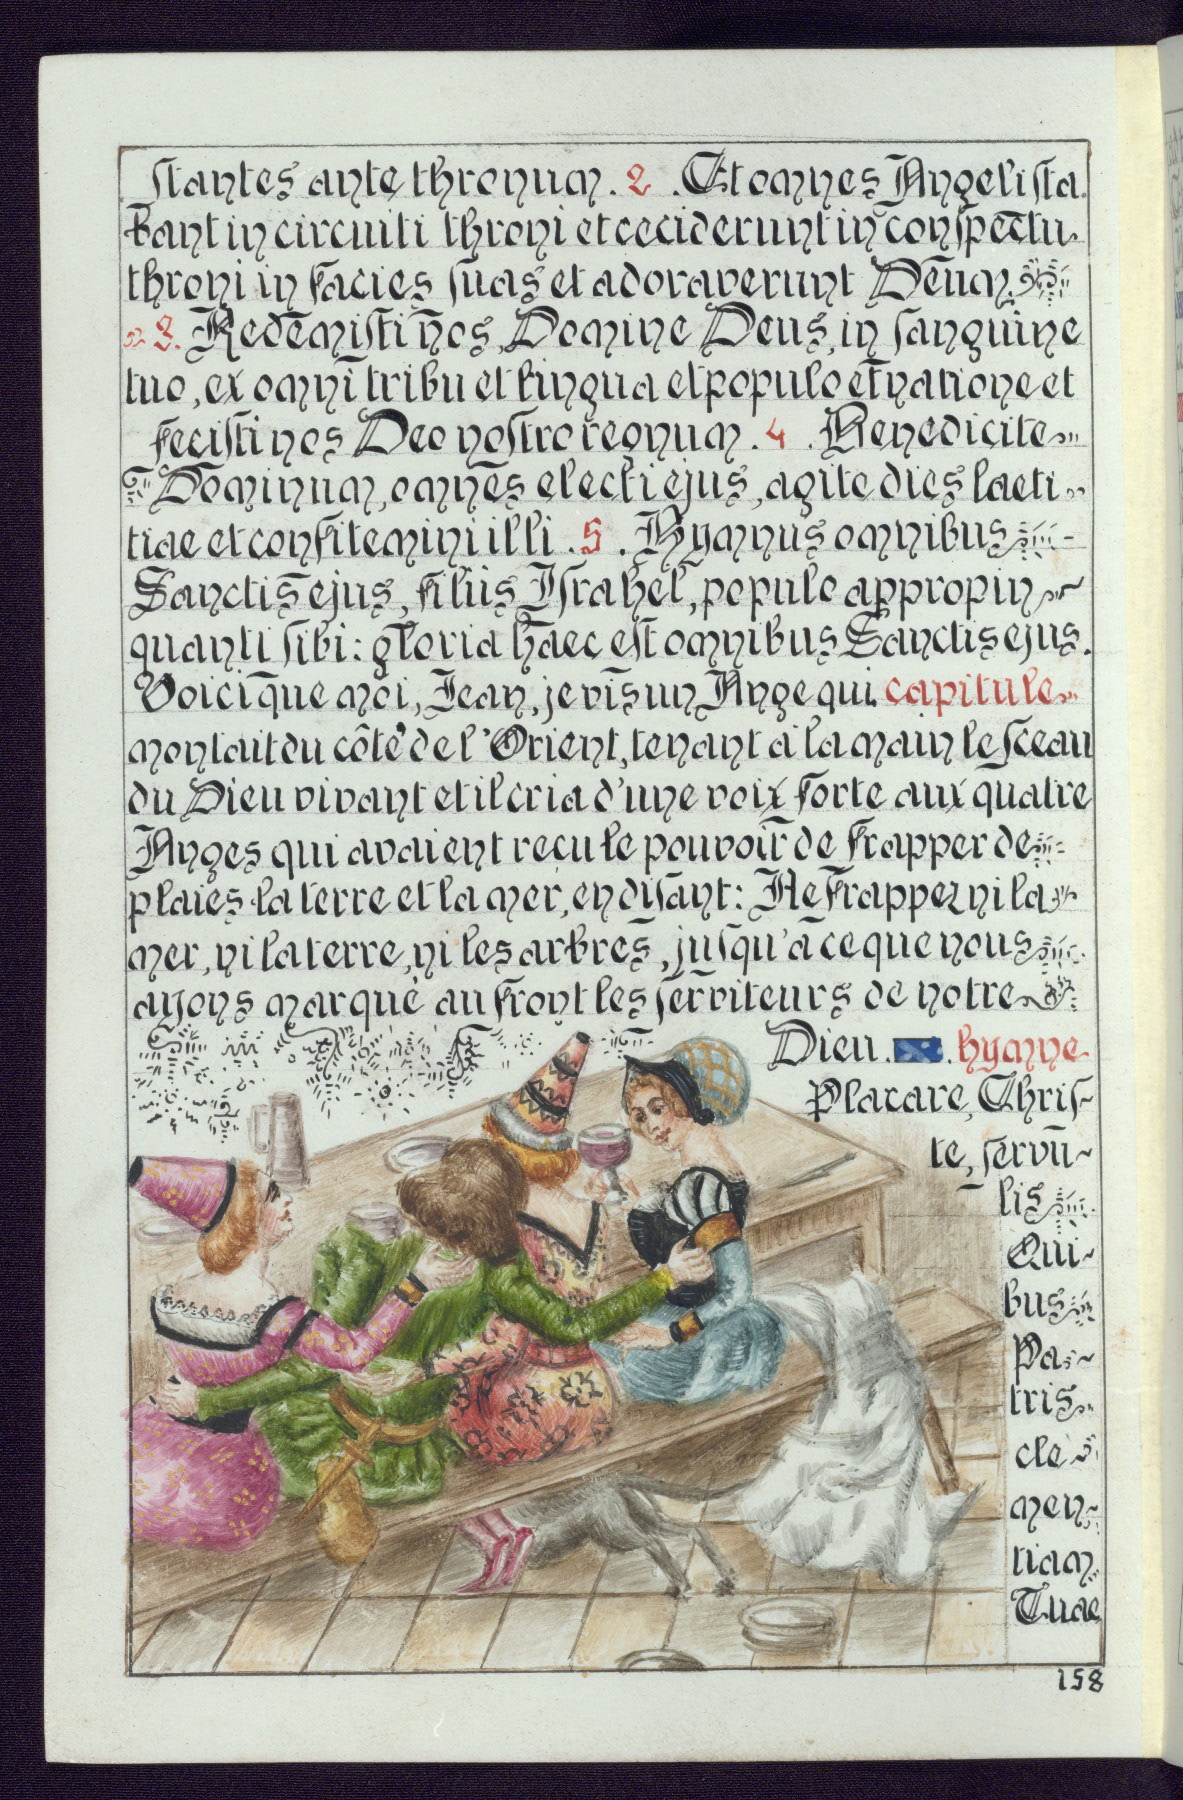 stantes ante thronum. 2 . Et omnes Angeli sta
bant in circuiti throni et ceciderunt in conspectu
throni in facies suas et adoraverunt Deum.
3. Redemisti nos, Domine Deus, in sanguine
tuo, ex omni tribu et lingua et populo et natione et
fecisti nos Deo nostro regnum . 4 . Benedicite
Dominum, omnes electi ejus, agite dies laeti
tiae et confitemini illi . 5 . Hymnus omnibus
Sanctis ejus, filiis Israhel, populo appropin
quanti sibi : gloria haec est omnibus Sanctis ejus.
Voici que moi, Jean, je vis un Ange qui capitule
montait du côté de l'Orient, tenant à la main le Sceau
du Dieu vivant et il cria d'une voix forte aux quatre
Anges qui avaient recu le pouvoir de frapper de
plaies la terre et la mer, en disant : Ne frappez ni la
mer, ni la terre, ni les arbres, jusqu'à ce que nous
ayons marqué au front les serviteurs de notre
Dieu . . hymne
Placare, Chris-
te, servu-
lis
Qui-
bus
Pa-
tris
cle
men-
tiam
Tuae
158